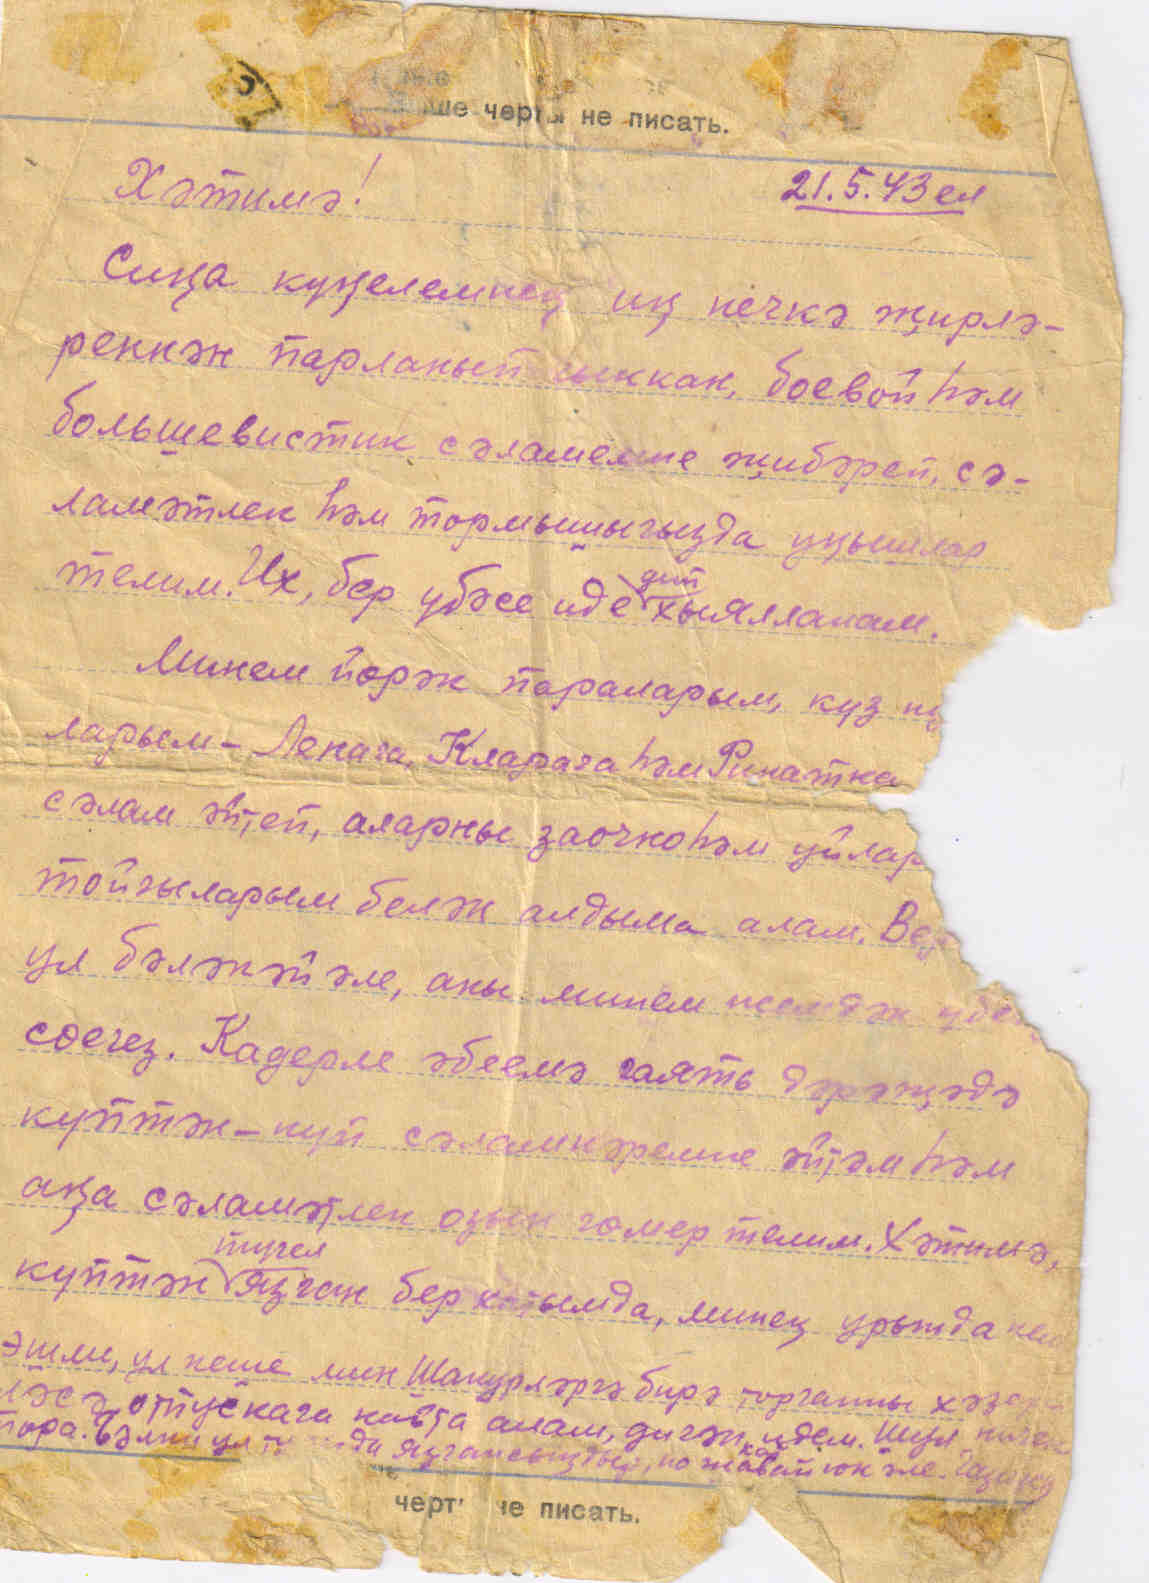 ше черты не писать.
Хәтимә!
21.5.43 ел
Сиңа күңелемнең иң нечкә җирлә-
реннән парланып чыккан, боевой һәм
большевистик сәламемне җибәреп, сә-
ламәтлек һәм тормышыгызда уңышлар
телим. Их, бер үбәсе иде дип хыялланам.
Минем йөрәк параларым, күз
ларым – Ленага, Кларага һәм Ринатка
сәлам әйтеп, аларны заочно һәм уйлар
тойгыларым белән алдыма алам.
ул бәләкәй әле, аны минем исемдән
сөегез. Кадерле әбеемә гаять дәрәҗәдә
күптән-күп сәламнәремне әйтәм һәм
аңа сәламәтлек озын гомер телим. Хәтимә,
күптән түгел язган бер хатымда, минем урында кем
эшли, ул кеше мин Шакурләргә бирә торганны
отпускага кайта алам, дигән идем. Шул ничек
тора. Бәлки ул турыда язгансыңдыр, но жавап юк әле.
черт не писать.